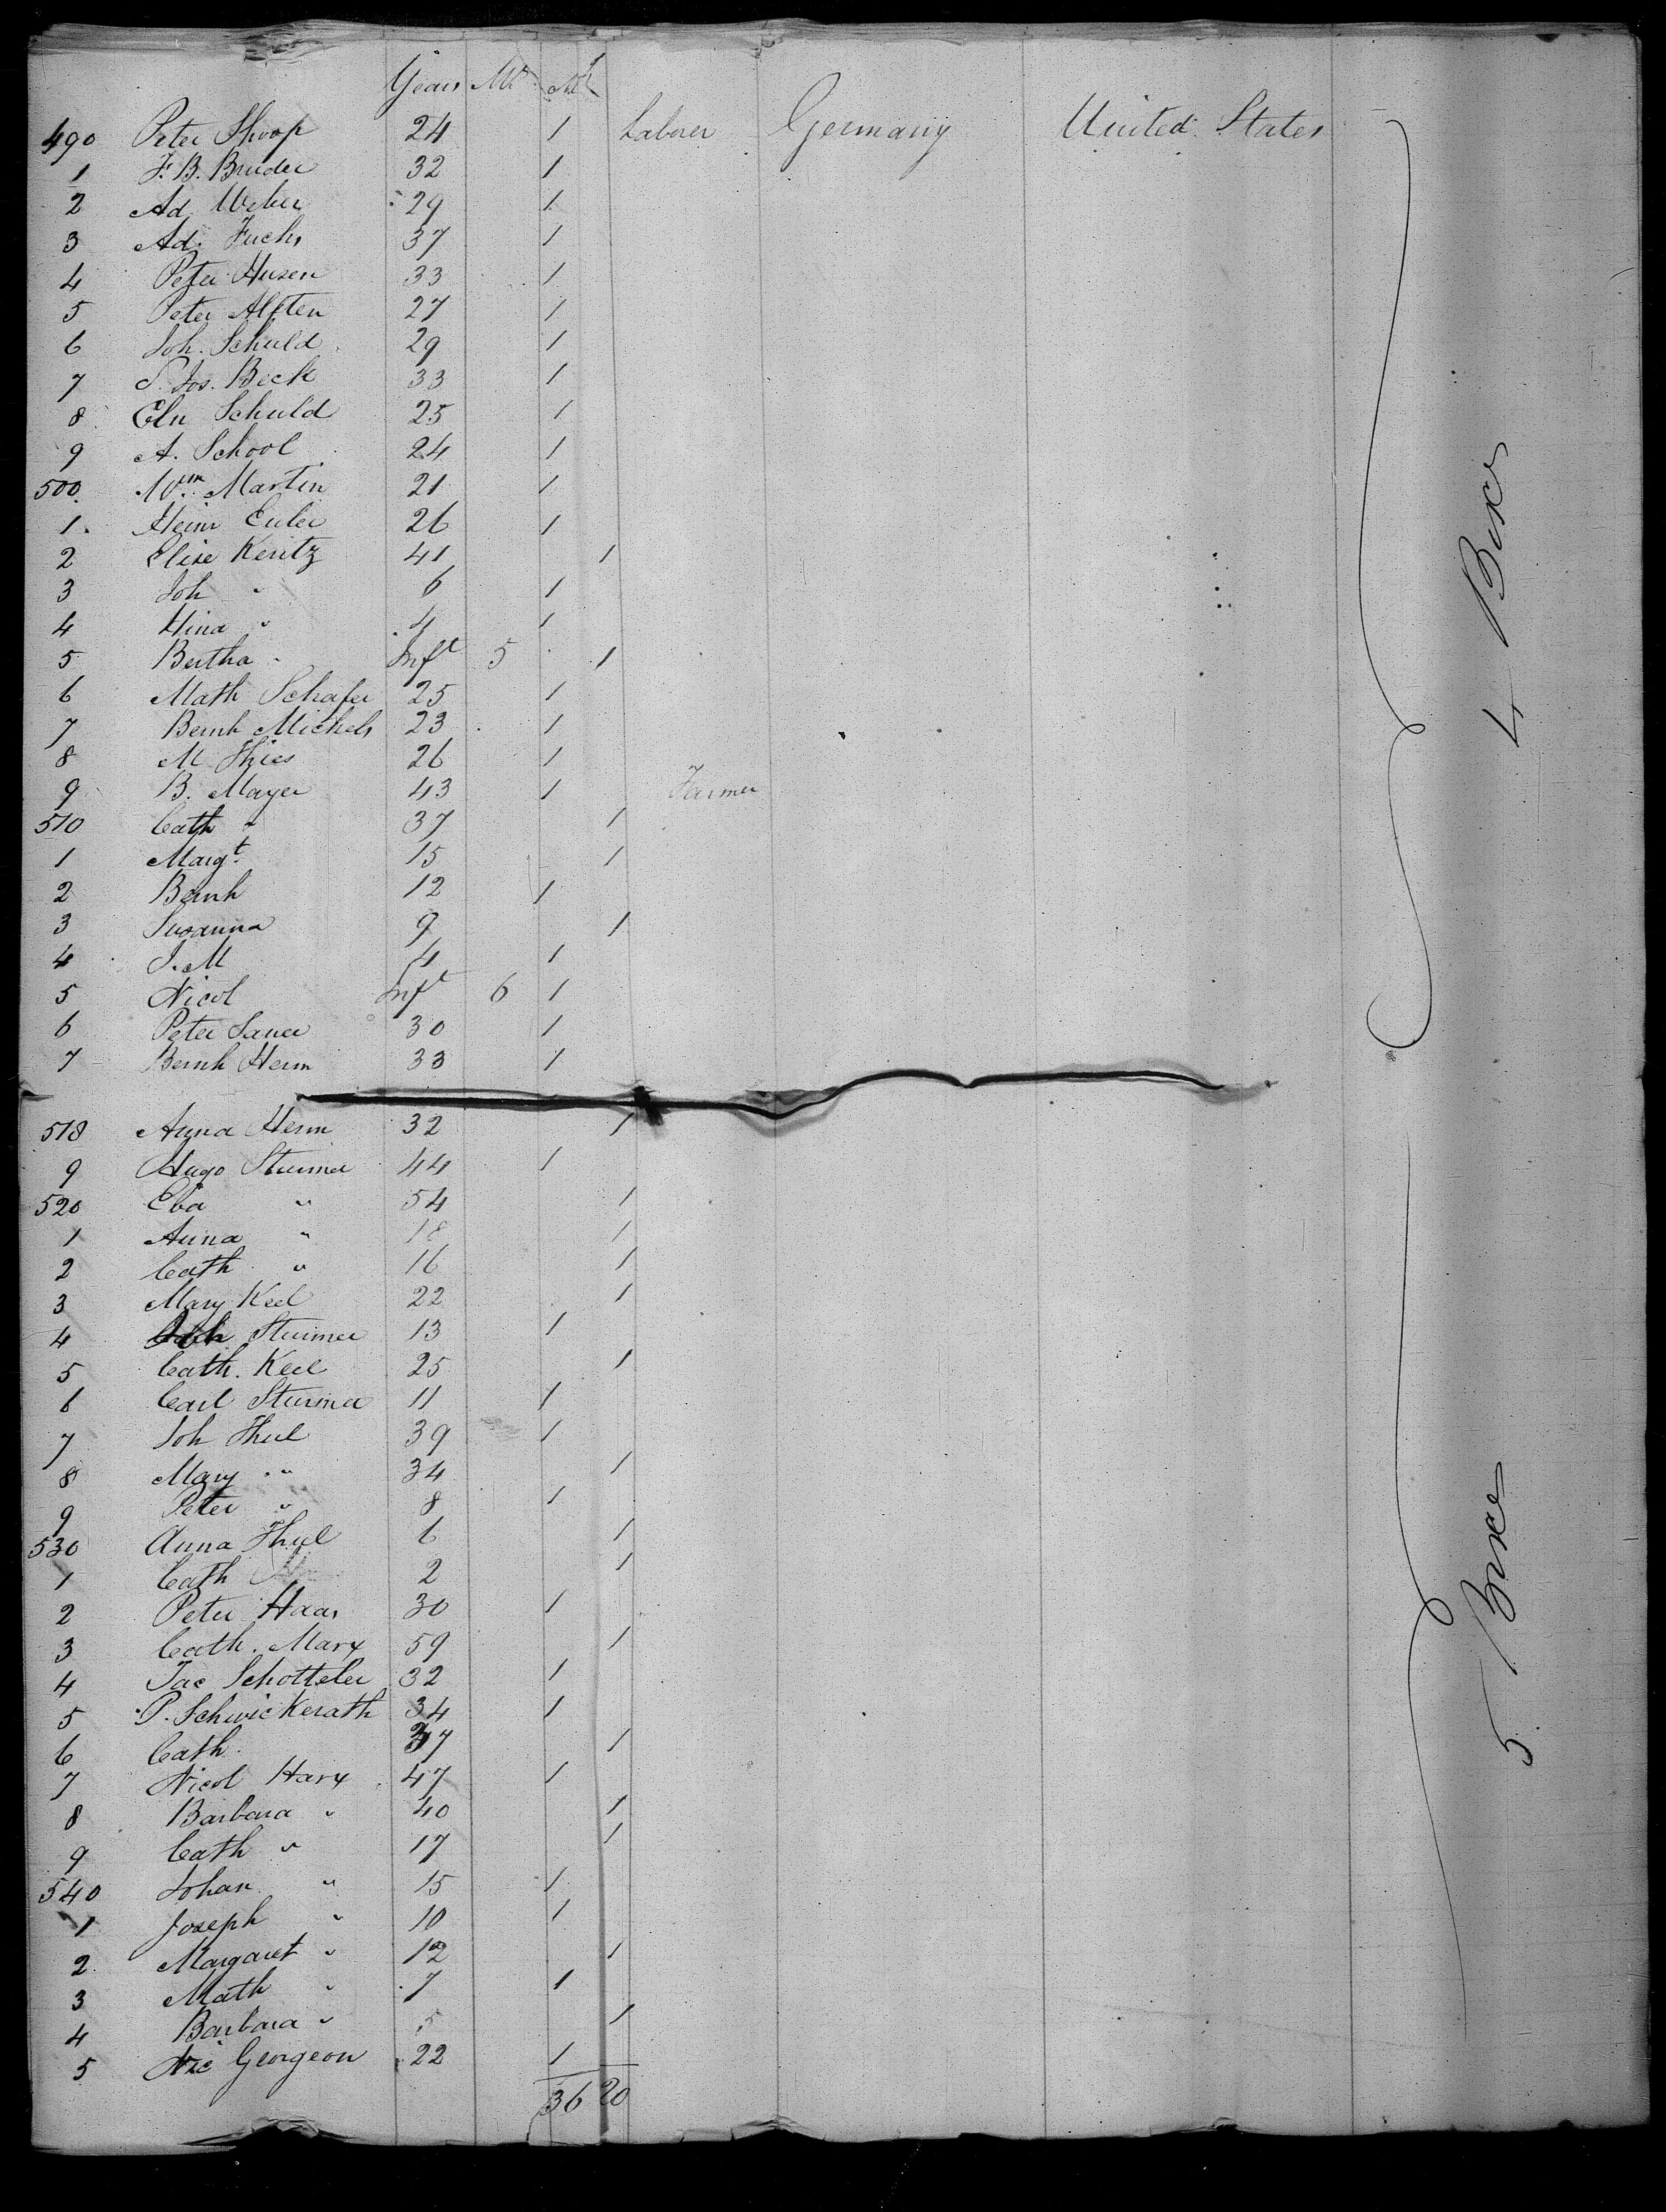 Years Mo M
490 Peter Shoop 24 1 Laborer Germany United States
1 F. B. Bruder 32 1
2 Ad. Weber 29 1
3 Ad. Fuchs 37 1
4 Peter Husen 33 1
5 Peter Alften 27 1
6 Joh. Schuld 29 1
7 P. Jos. Beck 33 1
8 Eln Schuld 25 1
9 A. School 24 1
500 Wm Martin 21 1
1 Heinr Euler 26 1
2 Elise Kentz 41 1
3 Joh " 6 1
4 Hina " 4 1
5 Bertha " Inft 5 1
6 Math Schafer 25 1
7 Bernh Michels 23 1
8 M Thies 26 1
9 B. Mayer 43 1 Farmer
510 Cath " 37 1
1 Margt 15 1
2 Bernh 12 1
3 Susanna 9 1
4 J. M 4 1
5 Nicol Inft 6 1
6 Peter Sauer 30 1
7 Bernh Herm 33 1
4 Boxes
518 Anna Herm 32 1
9 Hugo Sturmer 44 1
520 Eva " 54 1
1 Anna " 18 1
2 Cath " 16 1
3 Mary Keel 22 1
4 Joh Sturmer 13 1
5 Cath. Keel 25 1
6 Carl Sturmer 11 1
7 Joh Thul 39 1
8 Mary " 34 1
9 Peter " 8 1
530 Anna Thul 6 1
1 Cath 2 1
2 Peter Haas 30 1
3 Cath. Marx 59 1
4 Jac Schotteler 32 1
5 P. Schwickerath 34 1
6 Cath. 37 1
7 Nicol Harx 47 1
8 Barbara " 40 1
9 Cath " 17 1
540 Johan " 15 1
1 Joseph " 10 1
2 Margaret " 12 1
3 Math " 7 1
4 Barbara " 5 1
5 Nic Georgeon 22 1
36 20
5 Boxes